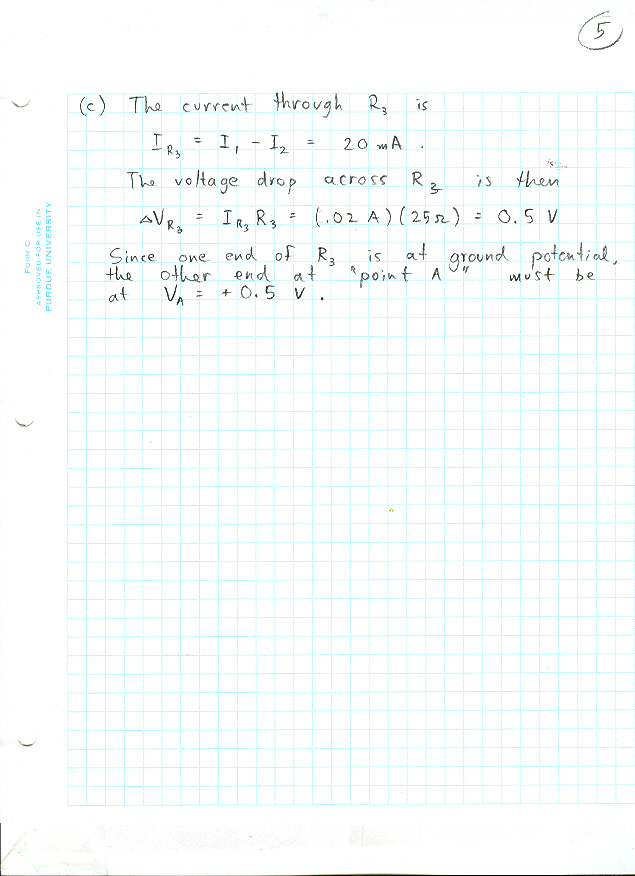 5
(c) The current through R₃ is
I_R₃ = I₁ - I₂ = 20 mA .
is
The voltage drop across R₃ is then
ΔV_R₃ = I_R₃ R₃ = (.02 A)(25Ω) = 0.5 V
Since one end of R₃ is at ground potential,
the other end at "point A" must be
at V_A = + 0.5 V .
FORM C
APPROVED FOR USE IN
PURDUE UNIVERSITY